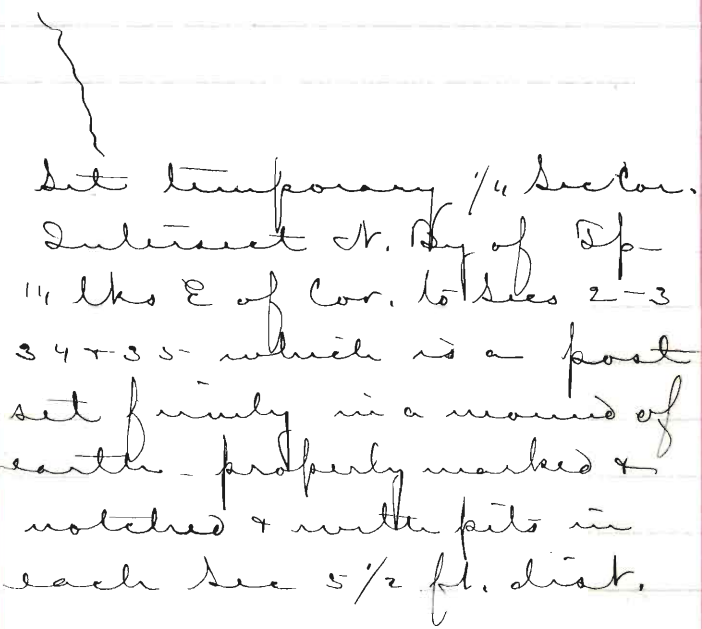 Set temporary 1/4 Sec Cor.
Intersect N. By of Tp
14 lks E of Cor. to Secs 2-3
34 + 35 which is a post
set firmly in a mound of
earth - properly marked &
notched & with pits in
each Sec 5 1/2 ft. dist.